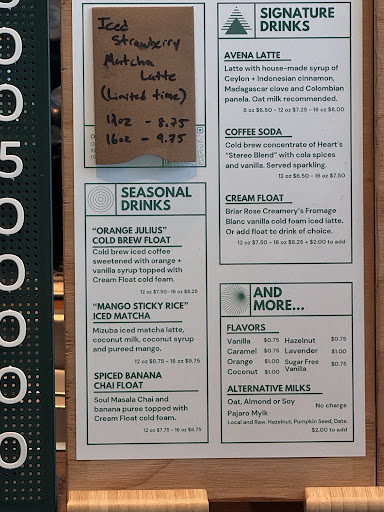 0
0
5
0
0
0
0
0
Iced
Strawberry
Matcha
Latte
(Limited time)
12oz - 8.75
16oz - 9.75
SEASONAL
DRINKS
"ORANGE JULIUS"
COLD BREW FLOAT
Cold brew iced coffee
sweetened with orange +
vanilla syrup topped with
Cream Float cold foam.
12 oz $7.50- 16 oz $8.25
"MANGO STICKY RICE"
ICED MATCHA
Mizuba iced matcha latte,
coconut milk, coconut syrup
and pureed mango.
12 oz $8.75 - 16 oz $9.75
SPICED BANANA
CHAI FLOAT
Soul Masala Chai and
banana puree topped with
Cream Float cold foam.
12 oz $7.75 - 16 oz $8.75
SIGNATURE
DRINKS
AVENA LATTE
Latte with house-made syrup of
Ceylon + Indonesian cinnamon,
Madagascar clove and Colombian
panela. Oat milk recommended.
8 oz $6.50 - 12 oz $7.25 - 16 oz $8.00
COFFEE SODA
Cold brew concentrate of Heart's
"Stereo Blend" with cola spices
and vanilla. Served sparkling.
12 oz $6.50 - 16 oz $7.50
CREAM FLOAT
Briar Rose Creamery's Fromage
Blanc vanilla cold foam iced latte.
Or add float to drink of choice.
12 oz $7.50 - 16 oz $8.25 + $2.00 to add
AND
MORE...
FLAVORS
Vanilla $0.75 Hazelnut $0.75
Caramel $0.75 Lavender $1.00
Orange $1.00 Sugar Free $0.75
Coconut $1.00 Vanilla
ALTERNATIVE MILKS
Oat, Almond or Soy No charge
Pajaro Mylk
Local and Raw. Hazelnut, Pumpkin Seed, Date.
$2.00 to add